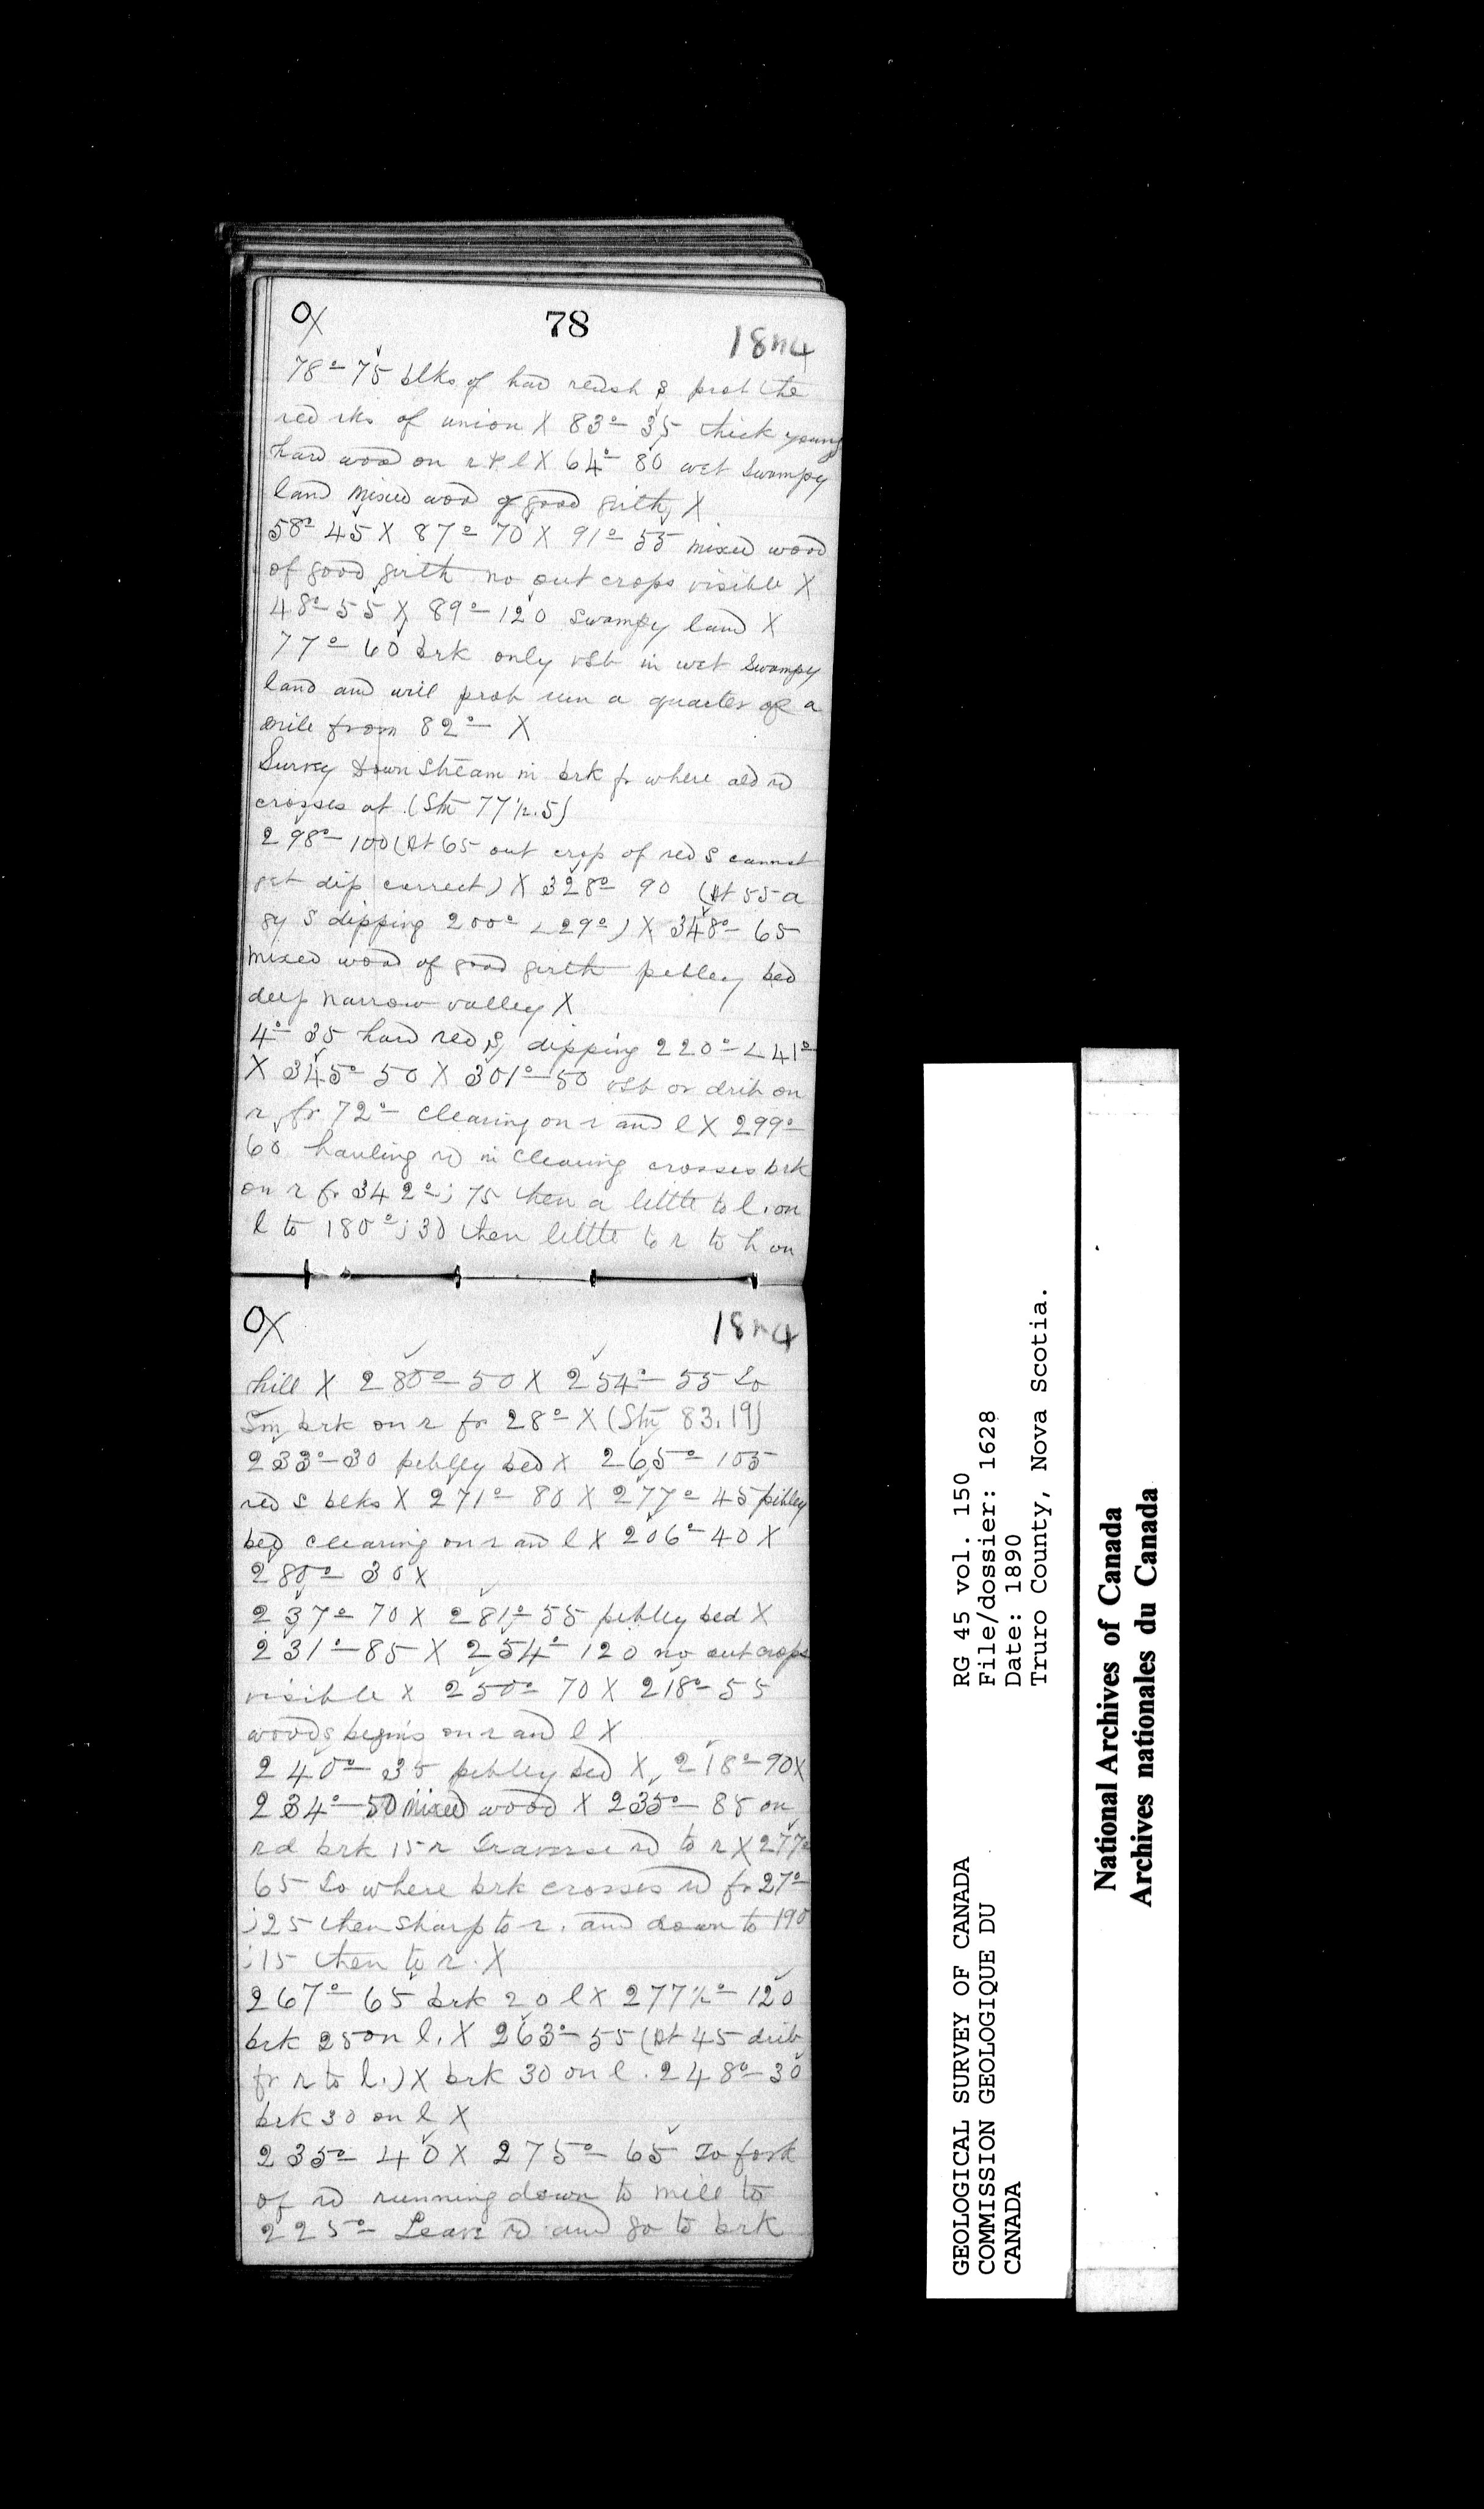 OX
78
18n4
78° 75 blks of hard redsh S, prob the
red rks of union X 83° 35 thick young
hard wood on r & l X 64° 80 wet swampy
land mixed wood of good girth, X
58° 45 X 87° 70 X 91° 55 mixed wood
of good girth no out crops visible X
48° 55 X 89° 120 swampy land X
77° 60 brk only vsb in wet swampy
land and will prob run a quarter of a
mile from 82° X
Survey down stream in brk fr where old rd
crosses at (Stn 77½.5)
298° 100 (At 65 out crop of red S cannot
get dip correct) X 328° 90 (At 55 a
gy S dipping 200° < 29°) X 348° 65
mixed wood of good girth pebley bed
deep narrow valley X
4° 35 hard red S, dipping 220° < 41°
X 345° 50 X 301° 50 vsb or drib on
r, fr 72° clearing on r and l X 299°
60 hauling rd in clearing crosses brk
on r fr 342°; 75 then a little to l, on
l to 180°; 30 then little to r to h on
OX
18n4
hill X 280° 50 X 254° 55 to
Sm brk on r fr 28° X (Stn 83.19)
233° 30 pebley bed X 265° 105
red S blks X 271° 80 X 277° 45 pebley
bed clearing on r and l X 206° 40 X
280° 30 X
237° 70 X 281° 55 pebley bed X
231° 85 X 254° 120 no out crops
visible X 250° 70 X 218° 55
woods begins on r and l X
240° 35 pebley bed X, 218° 90 X
234° 50 mixed wood X 235° 85 on
rd brk 15 r traverse rd to r X 277°
65 to where brk crosses rd fr 27°
; 25 then sharp to r. and down to 190
; 15 then to r. X
267° 65 brk 20 l X 277½° 120
brk 25 on l. X 263° 55 (At 45 drib
fr r to l.) X brk 30 on l. 248° 30
brk 30 on l X
235° 40 X 275° 65 to fork
of rd running down to mill to
225° Leave rd and go to brk
GEOLOGICAL SURVEY OF CANADA
COMMISSION GEOLOGIQUE DU
CANADA
RG 45 vol. 150
File/dossier: 1628
Date: 1890
Truro County, Nova Scotia.
National Archives of Canada
Archives nationales du Canada